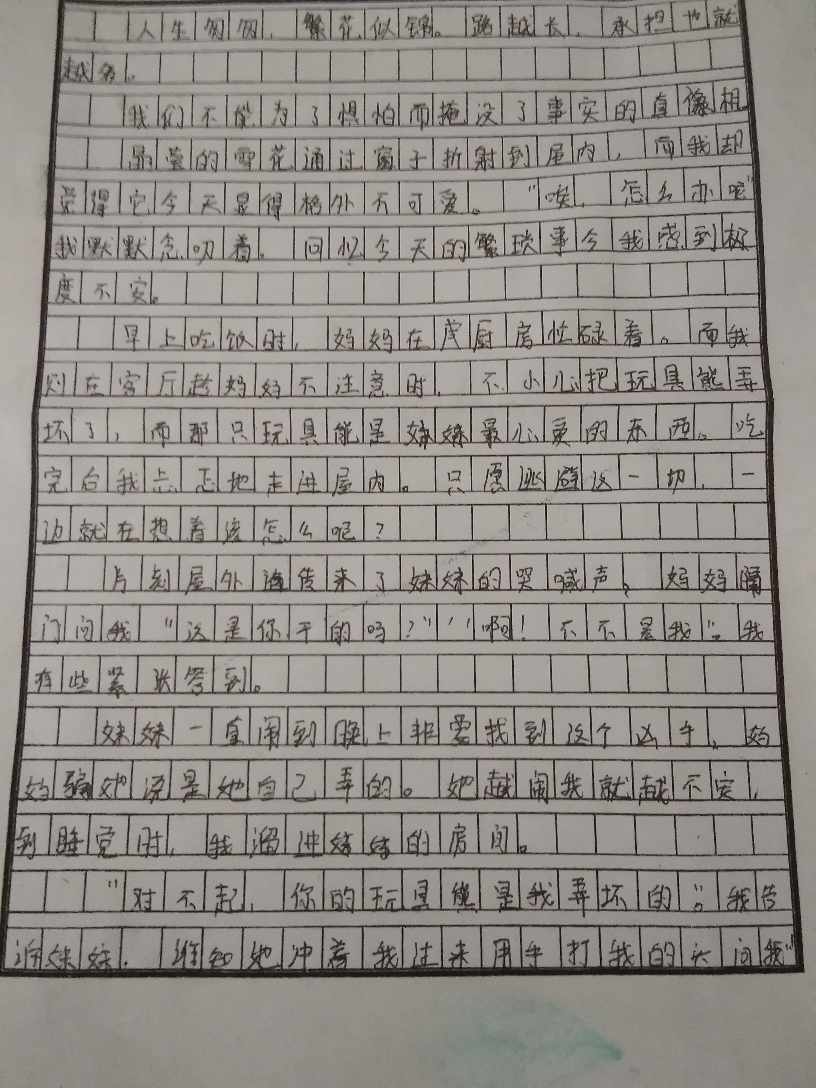 人生匆匆，繁花似锦。路越长，承担也就
越多。
我们不能为了惧怕而掩没了事实的真像相
晶莹的雪花通过窗子折射到屋内，而我却
觉得它今天显得格外不可爱。“唉，怎么办呢”
我默默念叨着。回忆今天的繁琐事令我感到极
度不安。
早上吃饭时，妈妈在厨房忙碌着。而我
则在客厅趁妈妈不注意时，不小心把玩具熊弄
坏了，而那只玩具熊是妹妹最心爱的东西。吃
完后我忐忑地走进屋内。只愿逃避这一切，一
边就在想着该怎么呢？
片刻屋外传来了妹妹的哭喊声，妈妈隔
门问我“这是你干的吗？”“啊！不不是我”。我
有些紧张答到。
妹妹一直闹到晚上非要找到这个凶手，妈
妈骗她说是她自己弄的。她越闹我就越不安，
到睡觉时，我溜进妹妹的房间。
“对不起，你的玩具熊是我弄坏的”。我告
诉妹妹。谁知她冲着我过来用手打我的头问我“